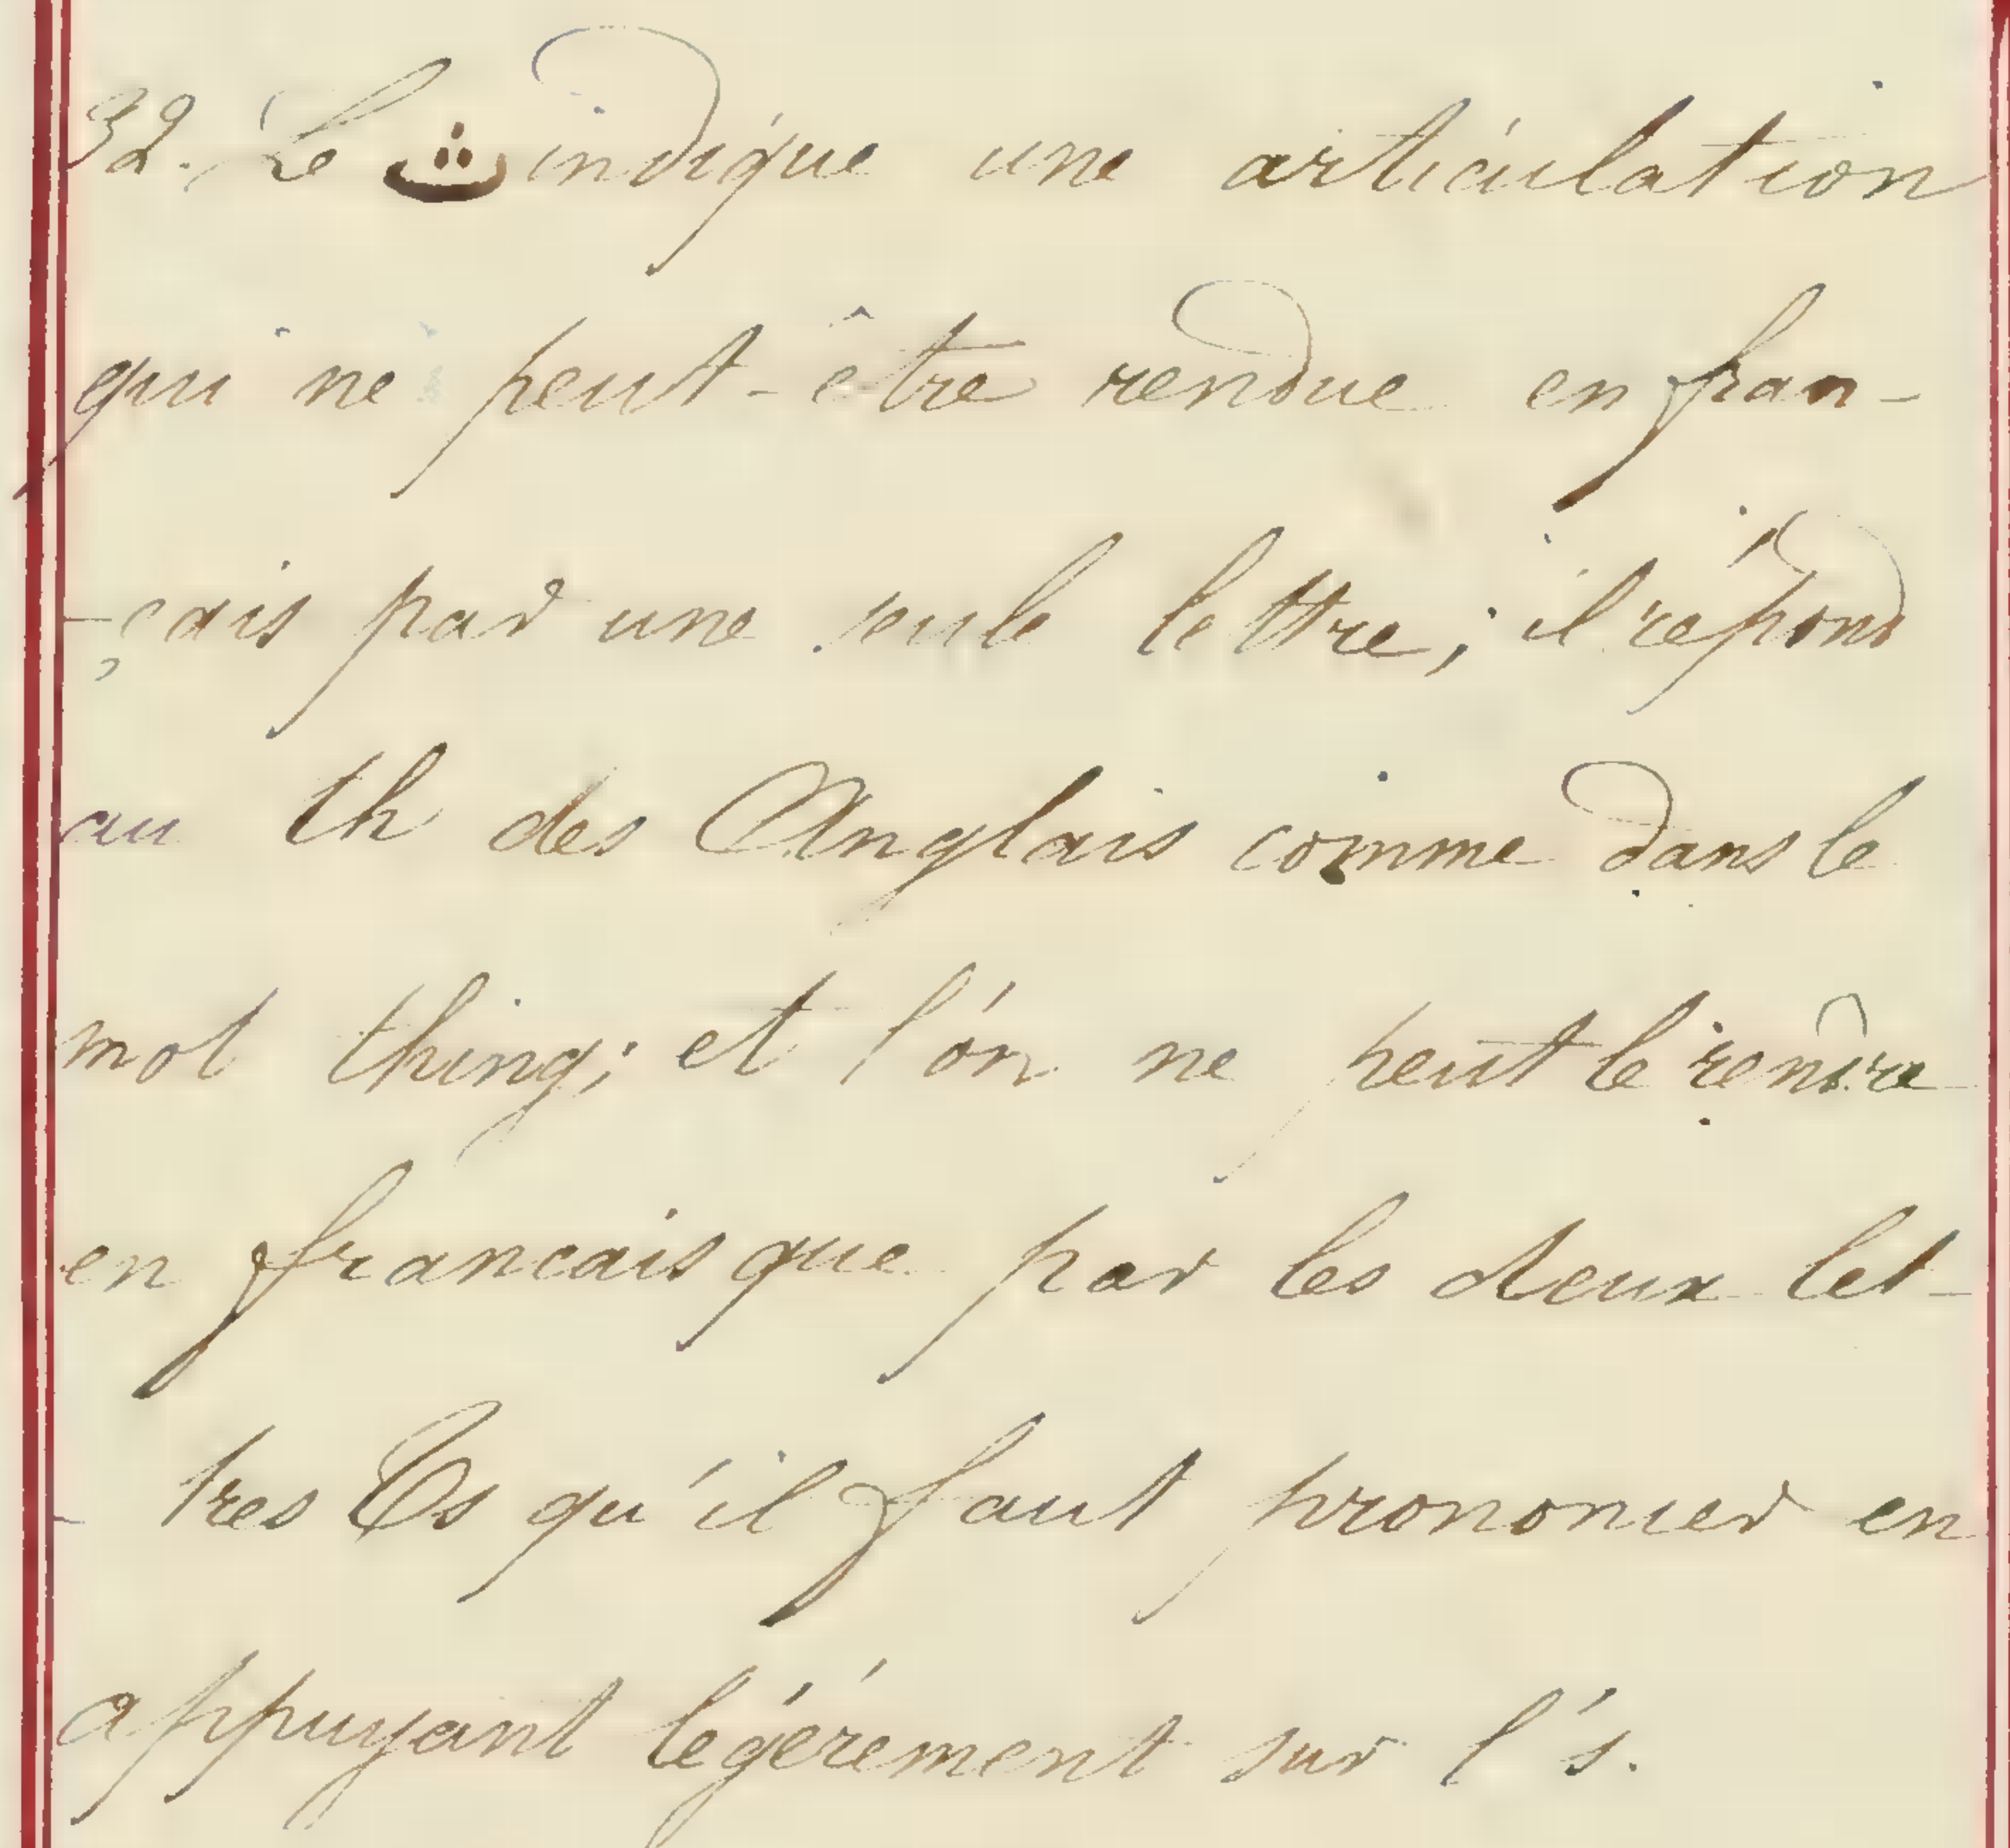 32. Le ث indique une articulation
qui ne peut-être rendue en fran-
-çais par une seule lettre; il répond
au th des Anglais comme dans le
mot thing; et l'on ne peut le rendre
en francais que par les deux let-
- tres Ts qu'il faut prononcer en
appuyant légérement sur l's.